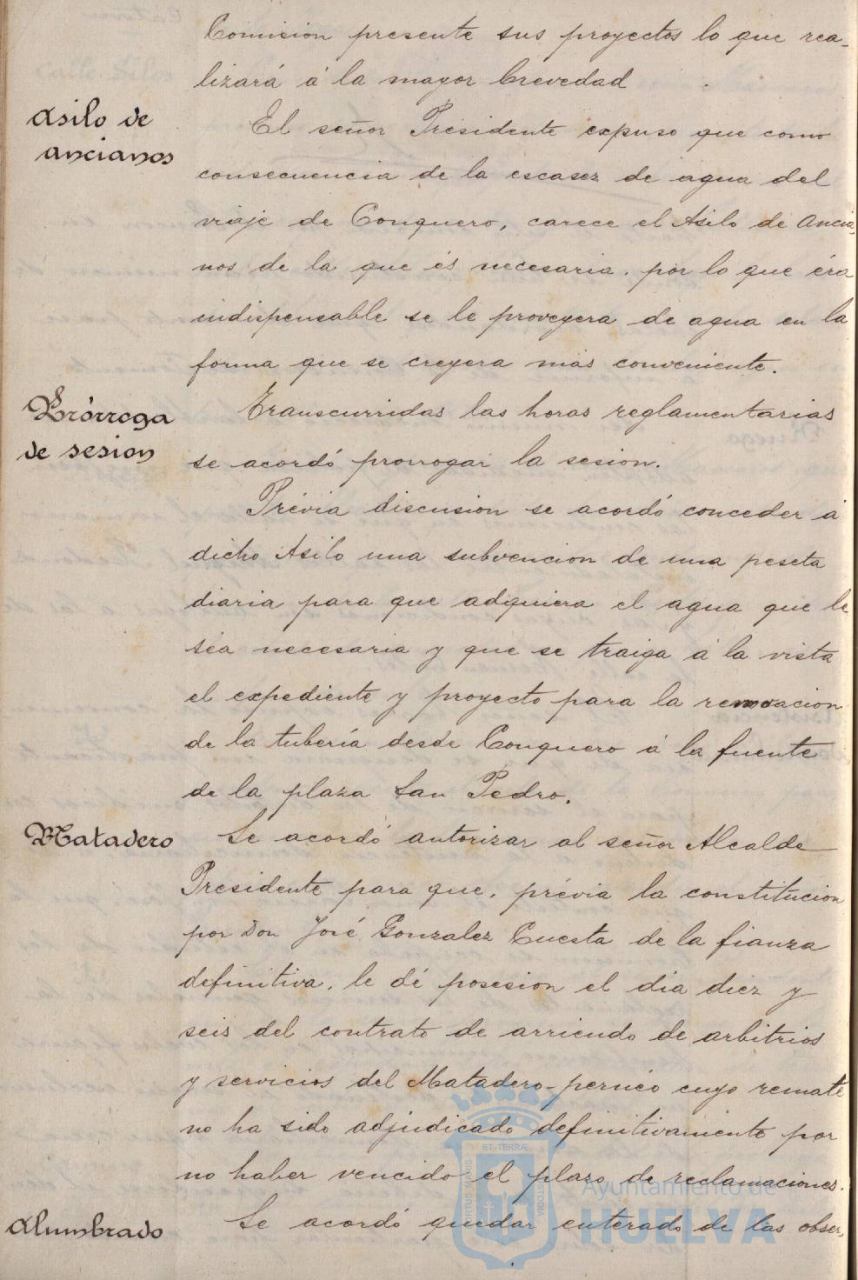 Comision presente sus proyectos lo que rea-
lizará á la mayor brevedad
Asilo de
ancianos
El señor Presidente expuso que como
consecuencia de la escasez de agua del
viaje de Conquero, carece el Asilo de Ancia-
nos de la que és necesaria. por lo que éra
indispensable se le proveyera de agua en la
forma que se creyera más conveniente.
Prórroga
de sesion
Transcurridas las horas reglamentarias
se acordó prorrogar la sesion.
Prévia discusion se acordó conceder á
dicho Asilo una subvencion de una peseta
diaria para que adquiera el agua que le
séa necesaria y que se traiga á la vista
el expediente y proyecto para la renovacion
de la tubería desde Conquero á la fuente
de la plaza San Pedro.
Matadero
Se acordó autorizar al señor Alcalde
Presidente para que, prévia la constitucion
por Don José Gonzalez Cuesta de la fianza
definitiva, le dé posesion el dia diez y
seis del contrato de arriendo de arbitrios
y servicios del Matadero-pernéo cuyo remate
no ha sido adjudicado definitivamente por
no haber vencido el plazo de reclamaciones.
Alumbrado
Se acordó quedar enterado de las obser-
Ayuntamiento de
HUELVA